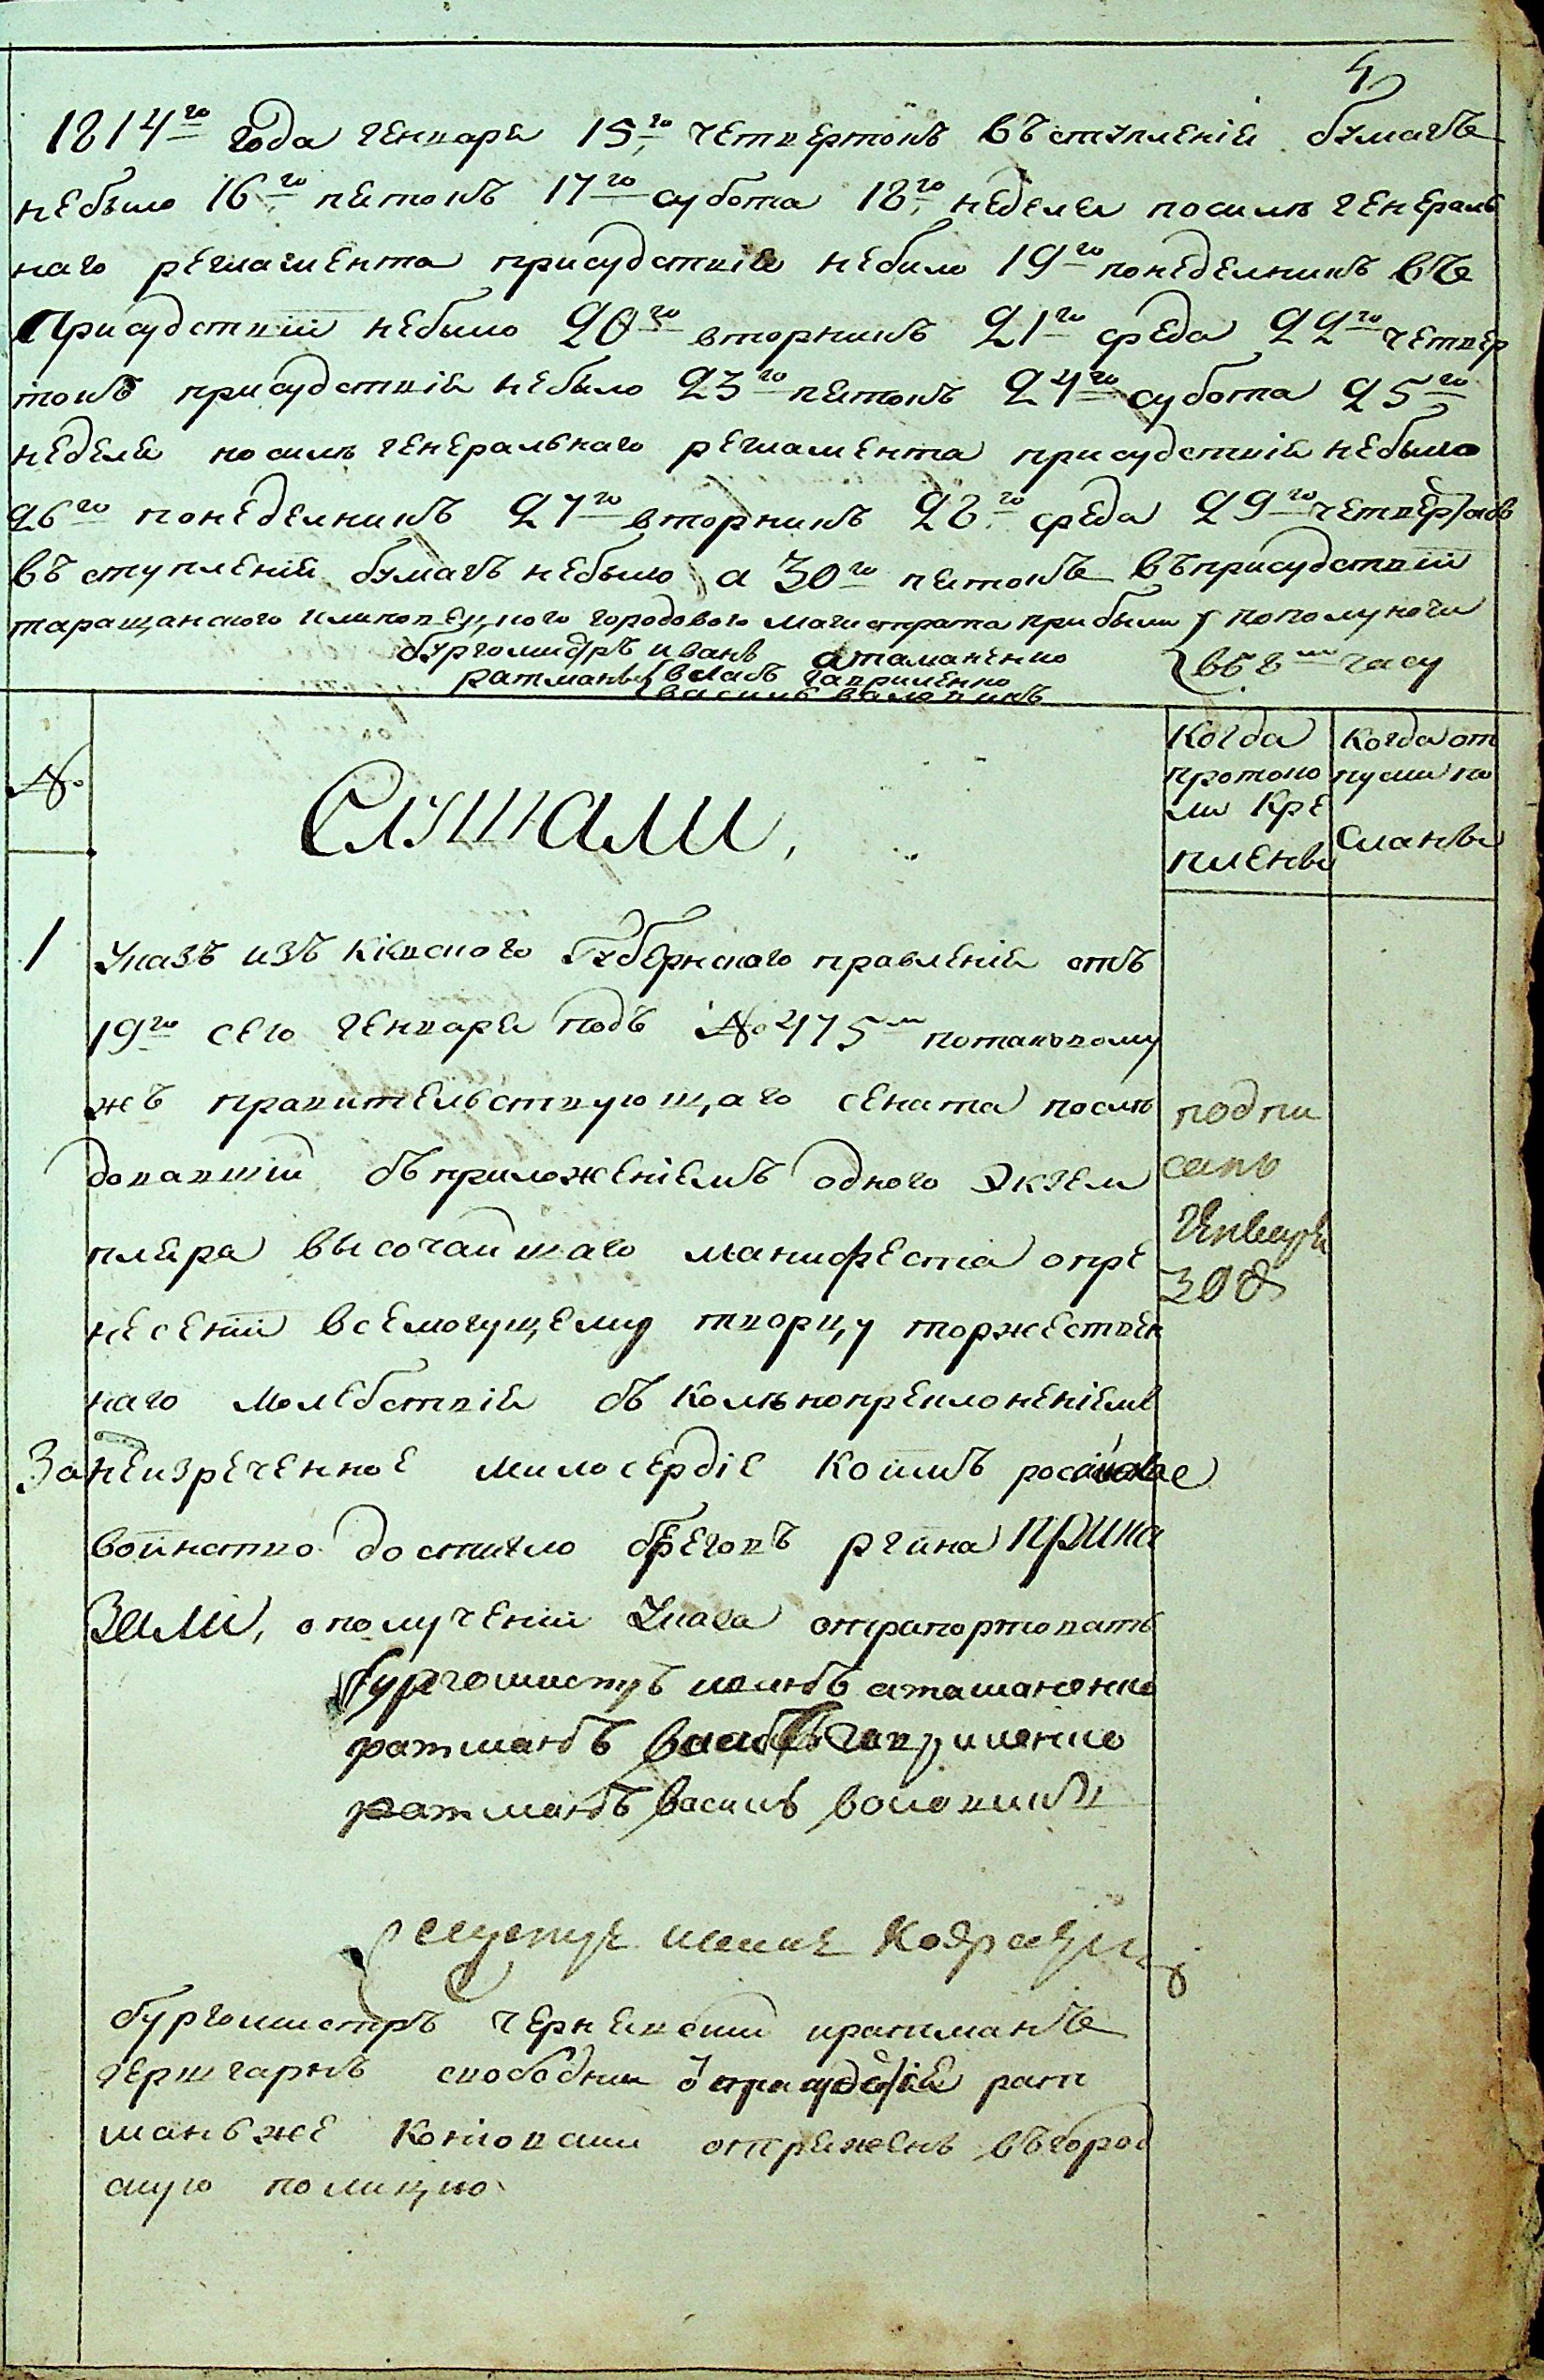 4
1814го года генваря 15го четвертокъ въ ступленія бумагъ
небыло 16го пятокъ 17го субота 18го неделя посилѣ генераль
наго регламента присудствія небило 19го понеделникъ въ
присудствіи небыло 20го вторникъ 21го среда 22го четвер
токъ присудствія небыло 23го пятокъ 24го субота 25го
неделя посилѣ генеральнаго регламента присудствія небыло
26го понеделникъ 27го вторникъ 28го среда 29го четвертокъ
въ ступленіи бумагъ небыло а 30го пятокъ въ присудствіи
таращанского городового магистрата прибыли пополуночи
бургомистръ иванъ атаманенко въ 8м часу
ратманы гавриленко
василь
№
Слушали,
Когда
протоко
ли кре
пленъ
Когда от
пуски по
сланы
1
Указъ изъ кіевского губернского правленія отъ
19го сего генваря подъ № 475м потаковому
жъ правительствующаго сената послѣ
довавшій съ приложеніемъ одного экзем
пляра высочайшаго манифеста опре
несеніи всемогущему творцу торжествен
наго молебствія съ колѣнопреклоненіемъ
За неизреченное милосердіе коимъ
воинство достигло бреговъ рейна прика
зали, ополученіи указа отрапортовать
бургомистръ атаманенко
ратманъ гавриленко
ратманъ василь
подпи
санъ
генваря
30 д
бургомистръ ратманъ
свободни рат
манъ же отряженъ въ город
скую полицію